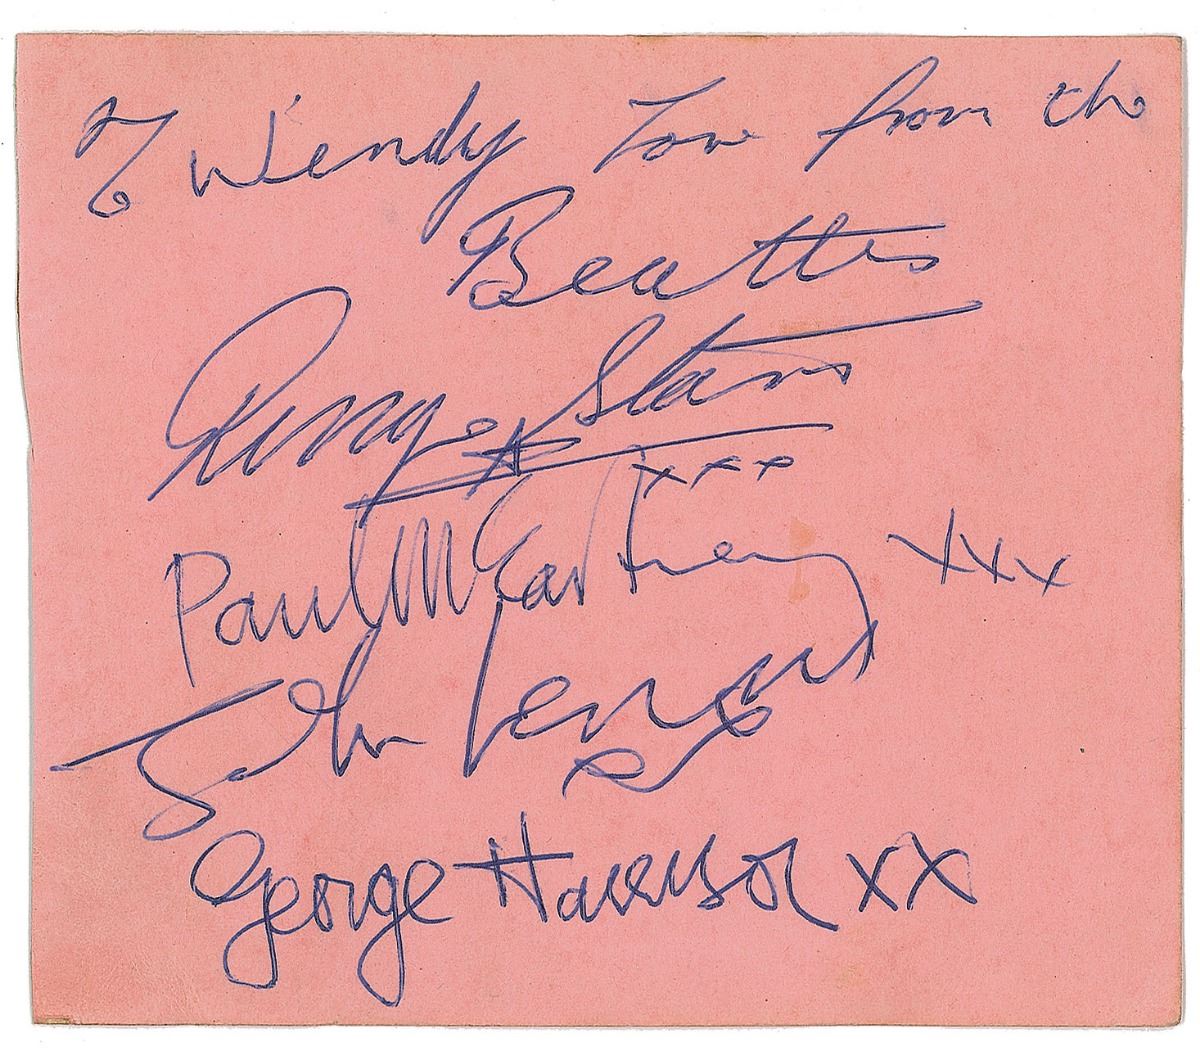 To Wendy Love from the
Beatles
Ringo Starr
xxx
Paul McCartney xxx
John Lennon
George Harrison XX